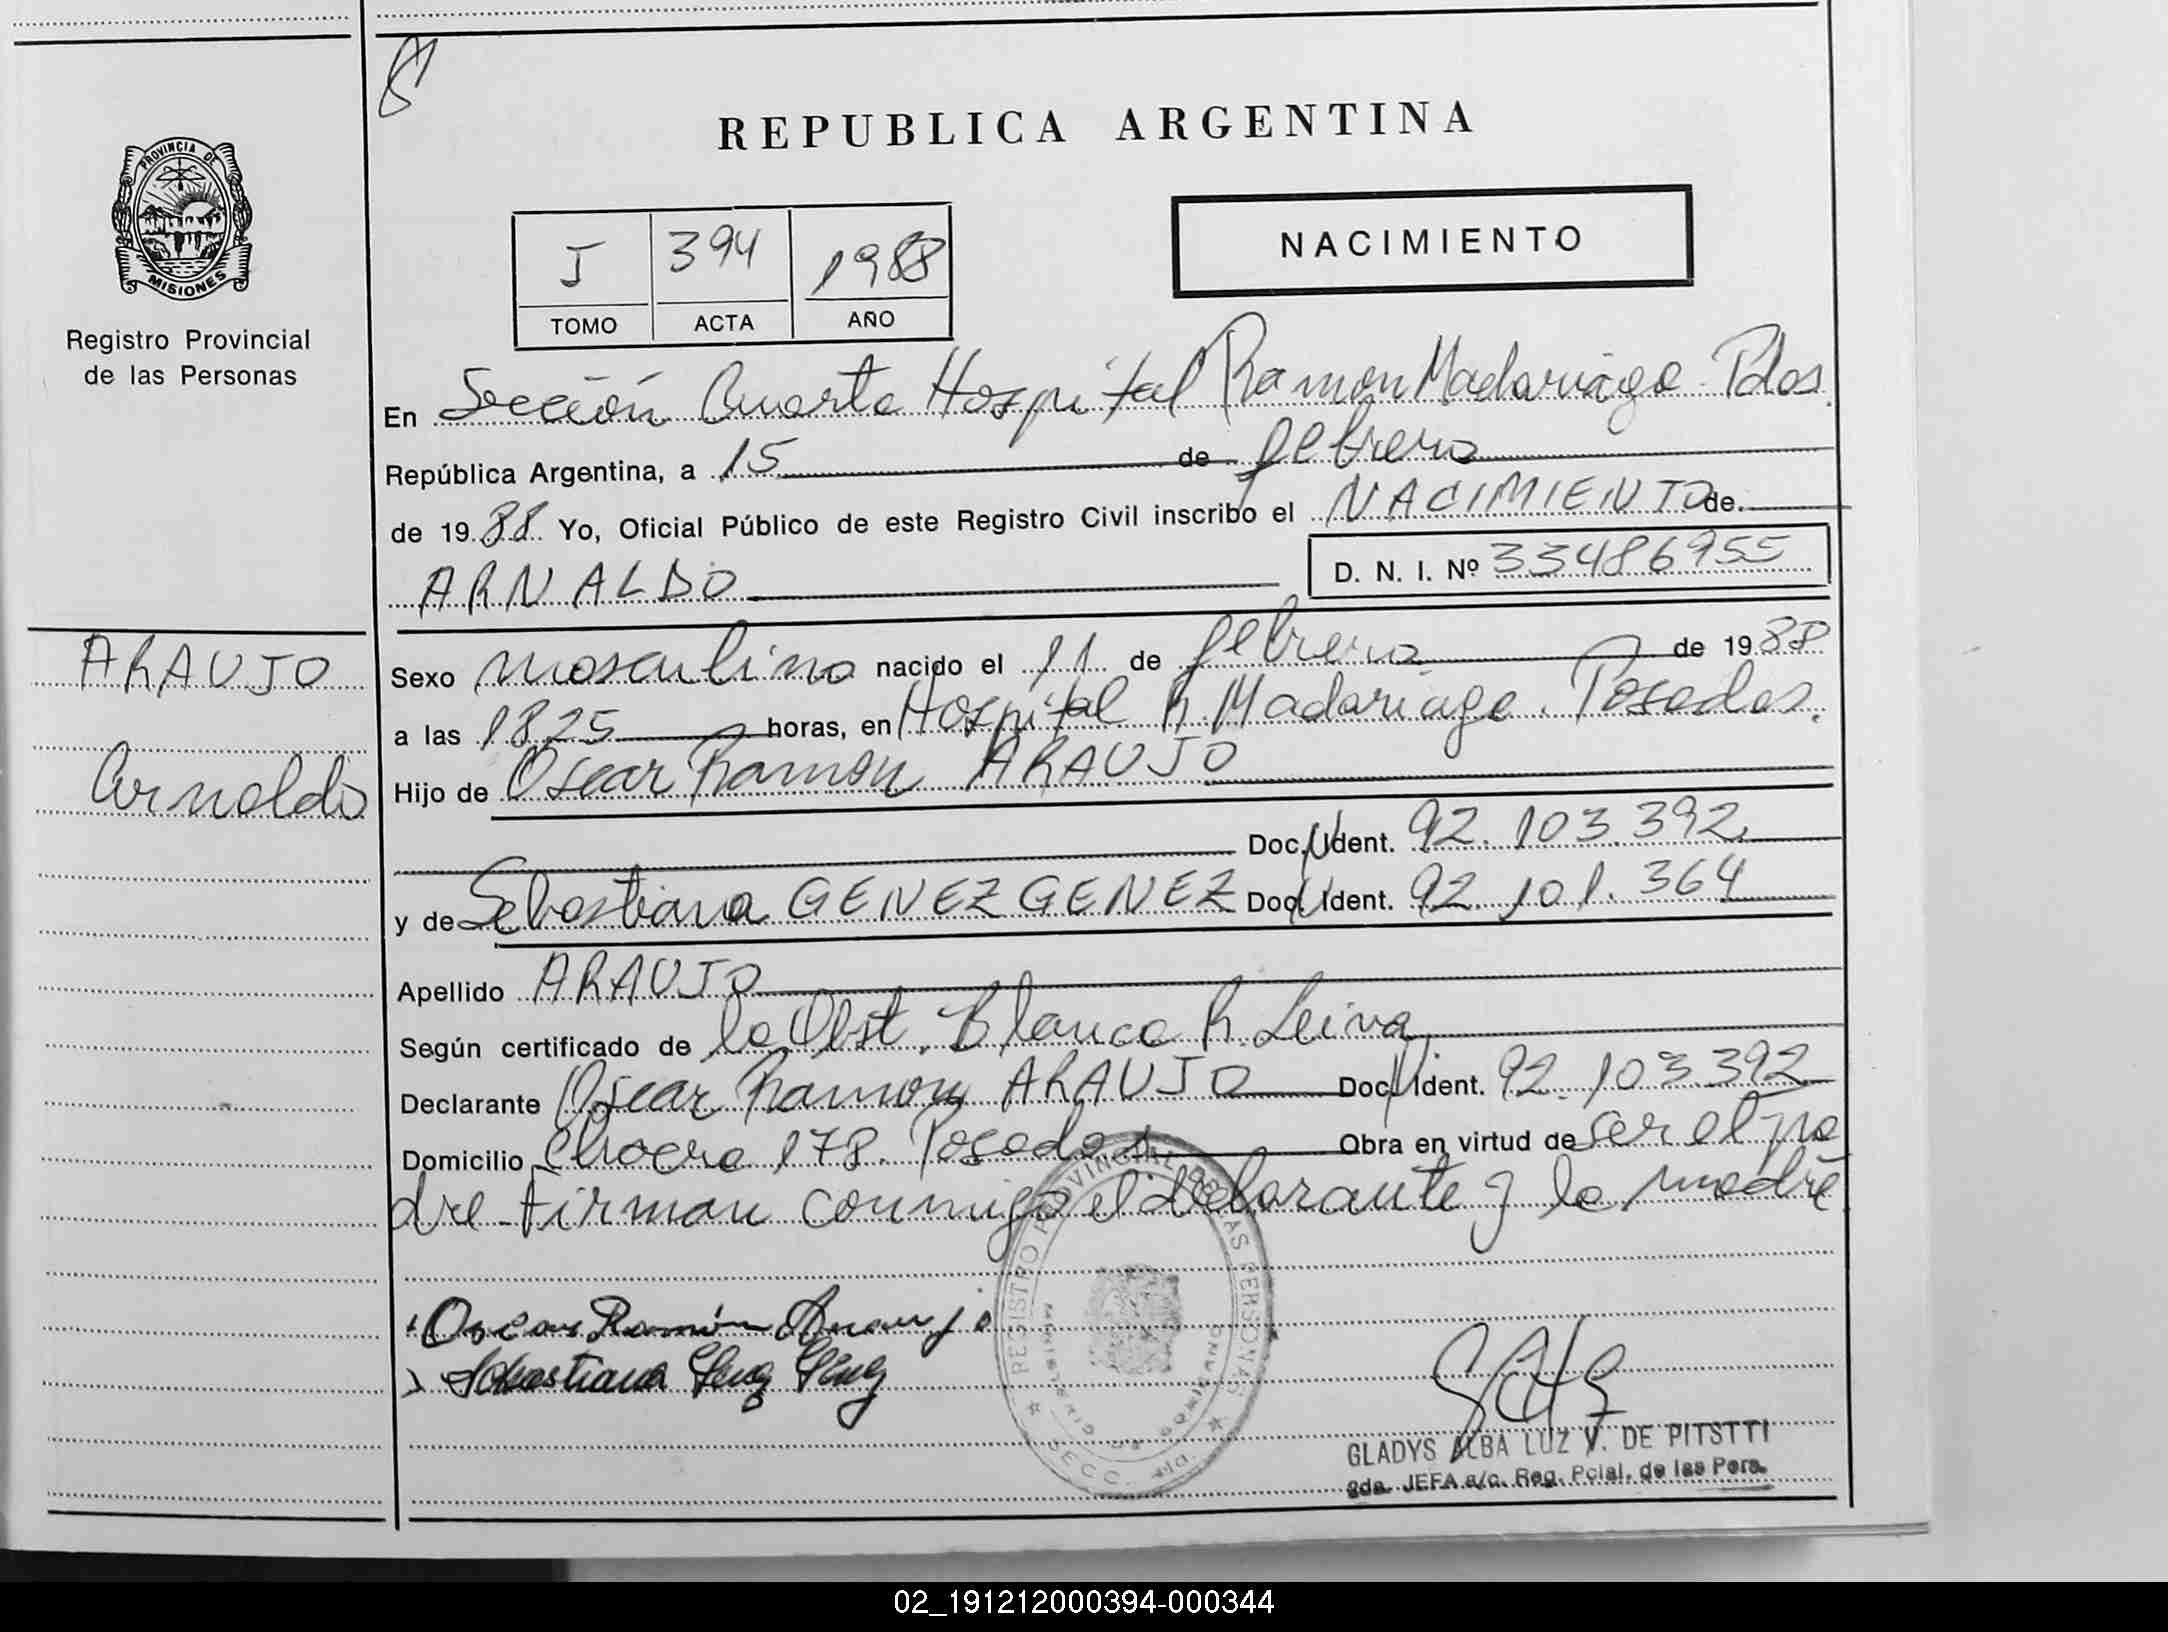 REPUBLICA ARGENTINA
PROVINCIA DE
MISIONES
Registro Provincial
de las Personas
J 394 1988
TOMO ACTA AÑO
NACIMIENTO
En Sección Cuarta Hospital Ramon Madariaga. Pdas.
República Argentina, a 15 de febrero
de 1988 Yo, Oficial Público de este Registro Civil inscribo el NACIMIENTO de
ARNALDO D. N. I. Nº 33486955
ARAUJO
Arnaldo
Sexo masculino nacido el 11 de febrero de 1988
a las 1825 horas, en Hospital R. Madariaga. Posadas.
Hijo de Oscar Ramon ARAUJO
Doc. Ident. 92.103.392
y de Sebastiana GENEZ GENEZ Doc. Ident. 92.101.364
Apellido ARAUJO
Según certificado de la Obst. Blanca R. Leiva
Declarante Oscar Ramon ARAUJO Doc. Ident. 92.103.392
Domicilio 178. Posadas Obra en virtud de ser el pa
dre. Firman conmigo el declarante y la madre
Oscar Ramón Araujo
Sebastiana
REGISTRO PROVINCIAL DE LAS PERSONAS
MINISTERIO DE GOBIERNO
SECC. 4ta.
GLADYS ALBA LUZ V. DE PITSTTI
2da. JEFA a/c. Reg. Pcial. de las Pers.
02_191212000394-000344